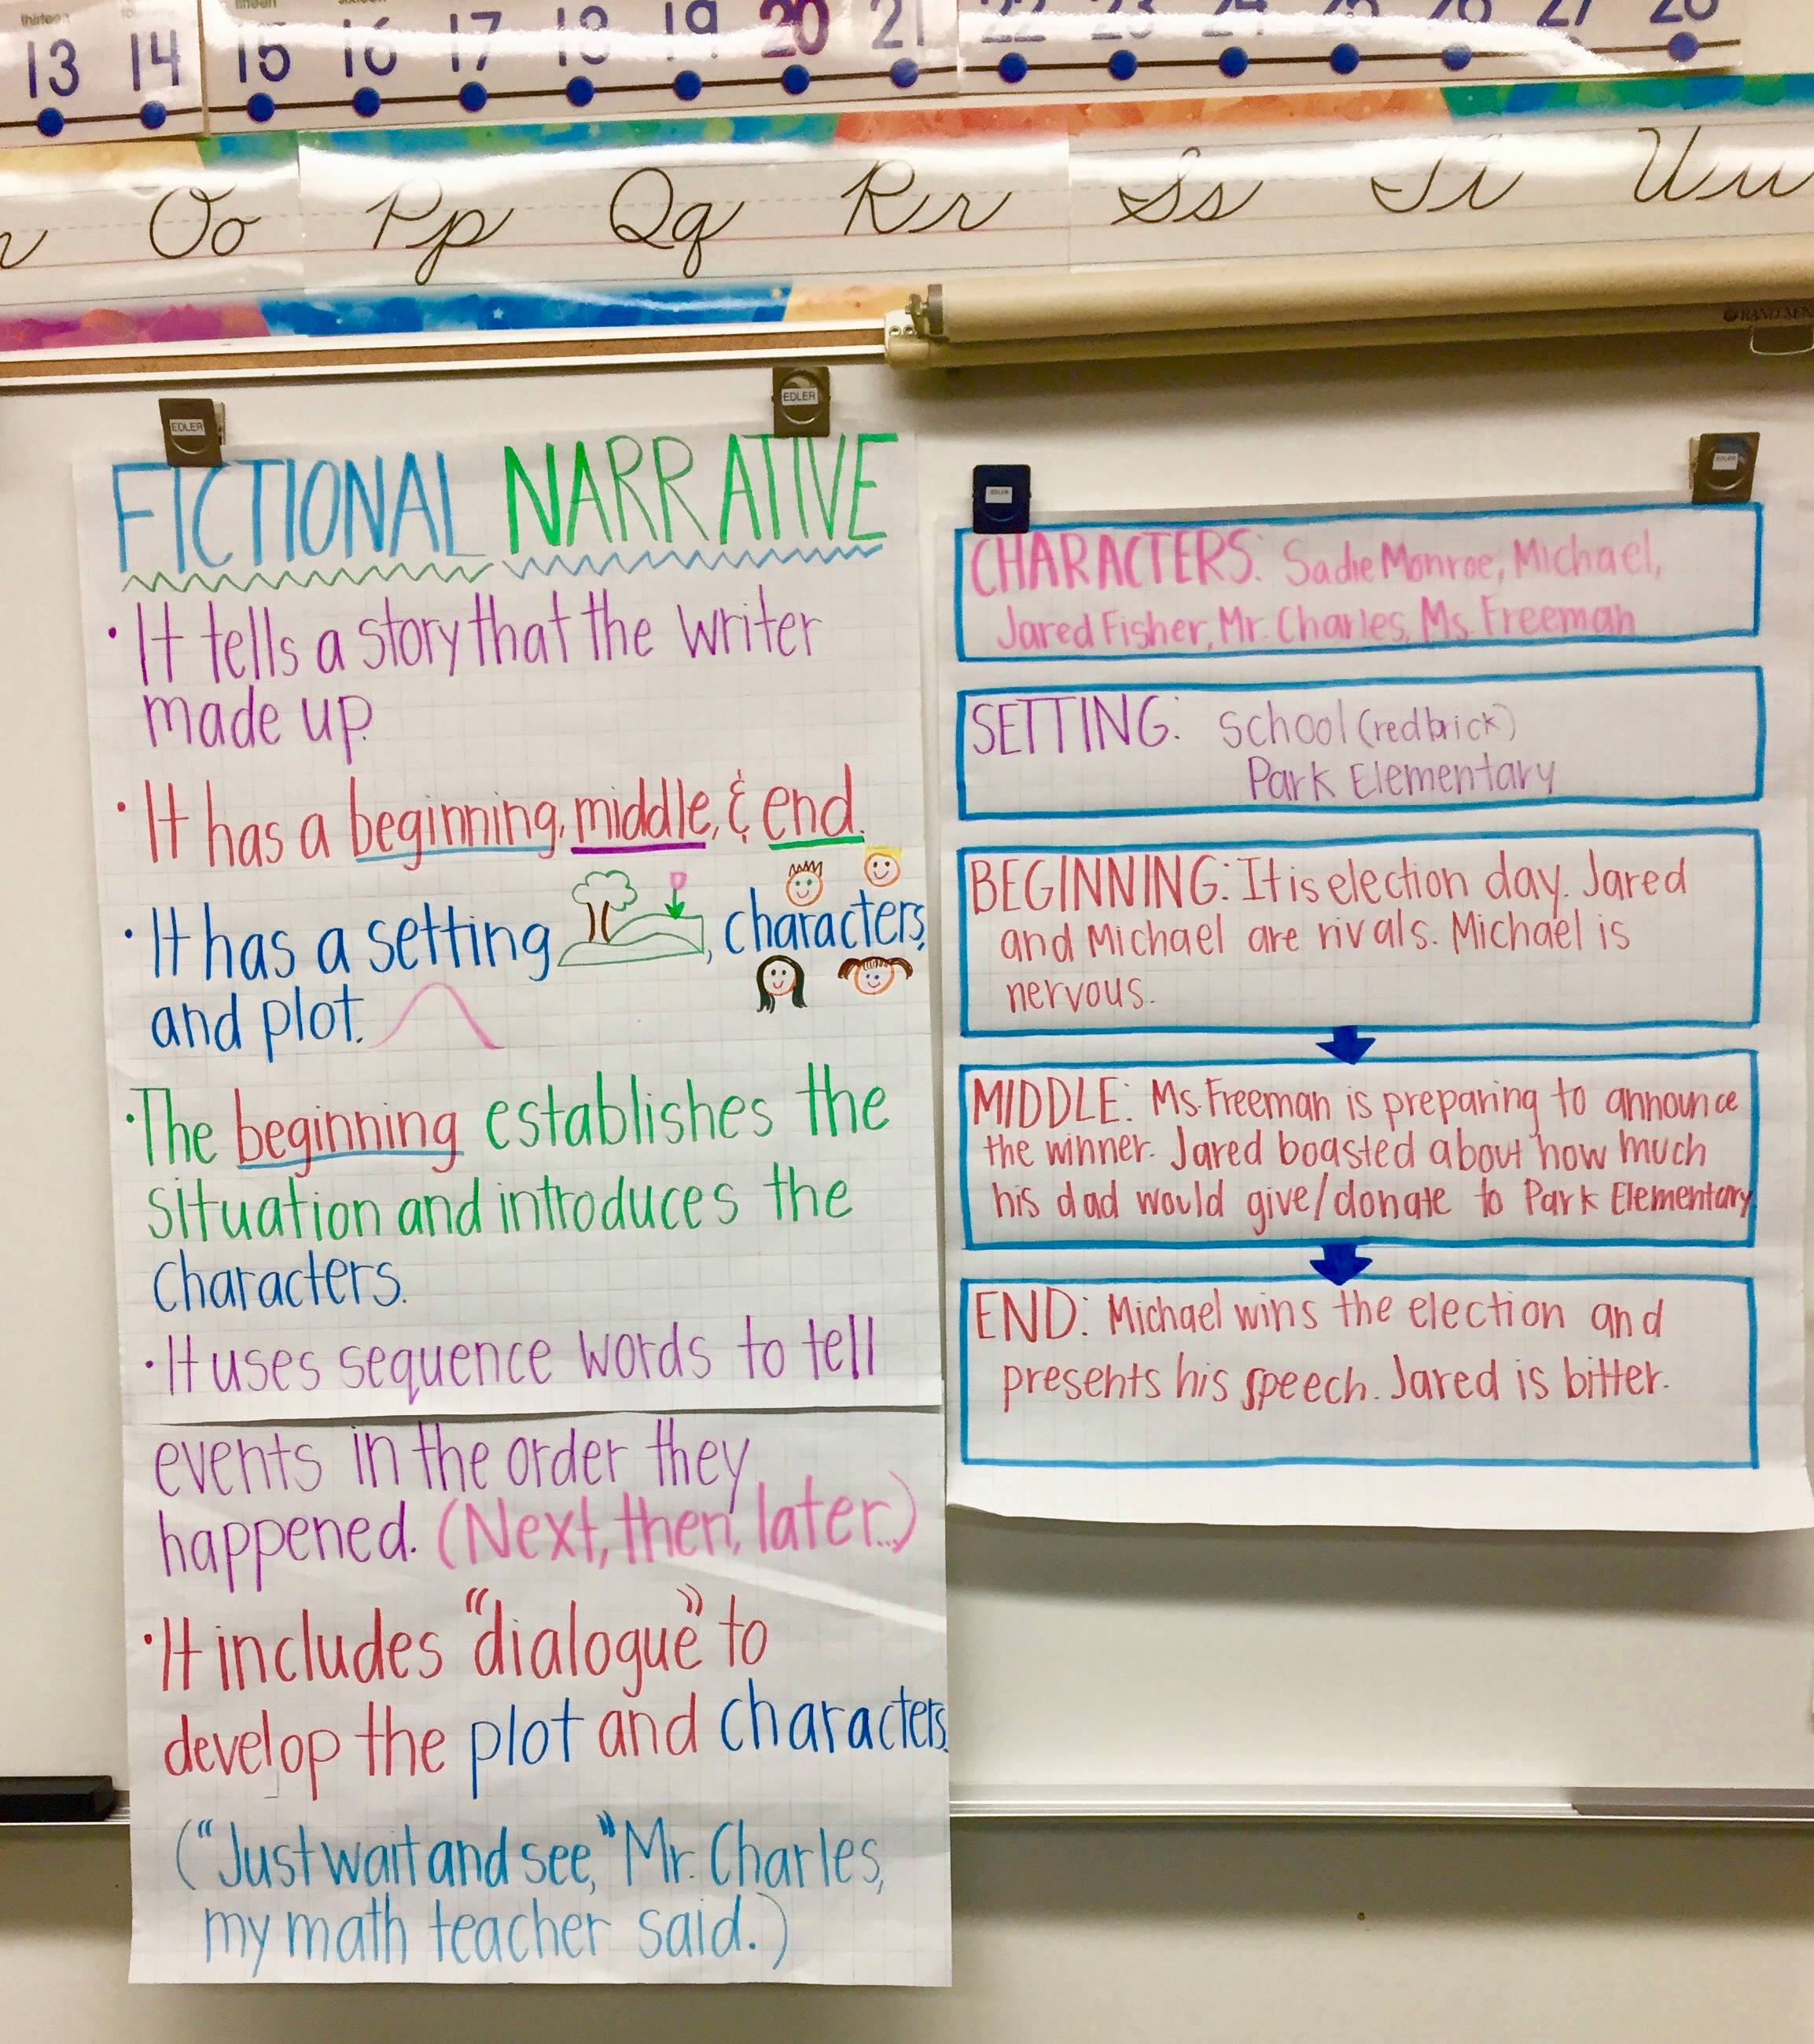 thirteen
fifteen
13 14 15 16 17 18 19 20 21 22 23 24 25 26 27 28
Oo Pp Qq Rr Ss Tt Uu
EDLER
EDLER
EDLER
EDLER
FICTIONAL NARRATIVE
• It tells a story that the writer
made up.
• It has a beginning, middle, & end.
• It has a setting , characters,
and plot.
• The beginning establishes the
situation and introduces the
characters.
• It uses sequence words to tell
events in the order they
happened. (Next, then, later...)
• It includes "dialogue" to
develop the plot and characters.
("Just wait and see," Mr. Charles,
my math teacher said.)
CHARACTERS: Sadie Monroe, Michael,
Jared Fisher, Mr. Charles, Ms. Freeman
SETTING: School (red brick)
Park Elementary
BEGINNING: It is election day. Jared
and Michael are rivals. Michael is
nervous.
MIDDLE: Ms. Freeman is preparing to announce
the winner. Jared boasted about how much
his dad would give/donate to Park Elementary
END: Michael wins the election and
presents his speech. Jared is bitter.